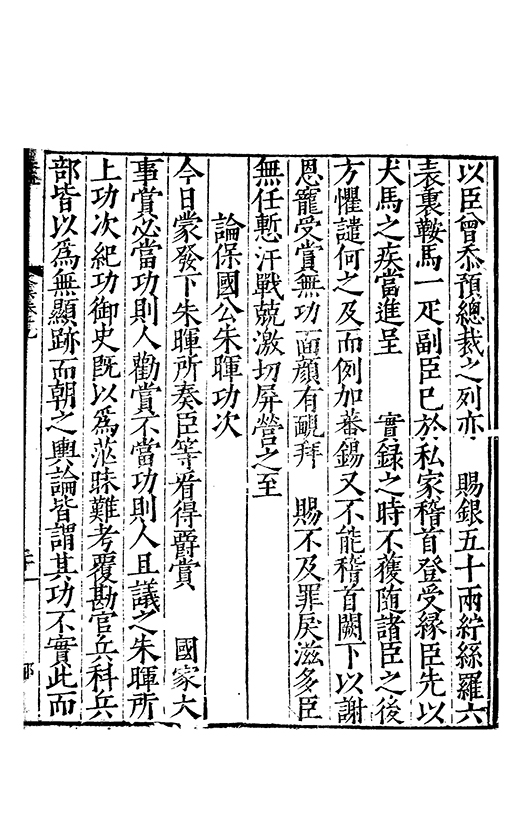 以臣曾忝預總裁之列亦　賜銀五十兩紵絲羅六
表裏鞍馬一疋副臣已於私家稽首登受緣臣先以
犬馬之疾當進呈　實録之時不獲隨諸臣之後
方懼譴何之及而例加蕃錫又不能稽首闕下以謝
恩寵受賞無功面顔有靦拜　賜不及罪戾滋多臣
無任慙汗戰兢激切屏營之至
論保國公朱暉功次
今日蒙發下朱暉所奏臣等看得爵賞　國家大
事賞必當功則人勸賞不當功則人且議之朱暉所
上功次紀功御史旣以爲茫昧難考覆勘官兵科兵
部皆以爲無顯跡而朝之輿論皆謂其功不實此而